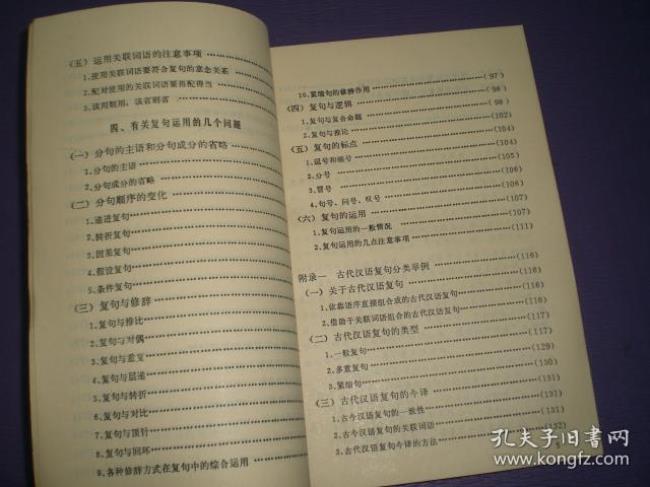 （五）运用关联词语的注意事项
1、使用关联词语要符合复句的意念关系
2、配对使用的关联词语要搭配得当
3、该用则用，该省则省
四、有关复句运用的几个问题
（一）分句的主语和分句成分的省略
1、分句的主语
2、分句成分的省略
（二）分句顺序的变化
1、递进复句
2、转折复句
3、因果复句
4、假设复句
5、条件复句
（三）复句与修辞
1、复句与排比
2、复句与对偶
3、复句与重复
4、复句与层递
5、复句与转折
6、复句与对比
7、复句与顶针
8、复句与回环
9、各种修辞方式在复句中的综合运用
10、紧缩句的修辞作用（97）
（四）复句与逻辑（98）
1、复句与复合命题（98）
2、复句与推论（102）
（五）复句的标点（104）
1、逗号和顿号（104）
2、分号（105）
3、冒号（106）
4、句号、问号、叹号（106）
（六）复句的运用（107）
1、复句运用的一般情况（107）
2、复句运用的几点注意事项（111）
附录一 古代汉语复句分类举例（116）
（一）关于古代汉语复句（116）
1、依靠语序直接组合成的古代汉语复句（116）
2、借助于关联词语组合的古代汉语复句（117）
（二）古代汉语复句的类型（117）
1、一般复句（117）
2、多重复句（129）
3、紧缩句（130）
（三）古代汉语复句的今译（131）
1、古今汉语复句的一致性（131）
2、古今汉语复句的关联词语（131）
3、古代汉语复句今译的方法（132）
孔夫子旧书网